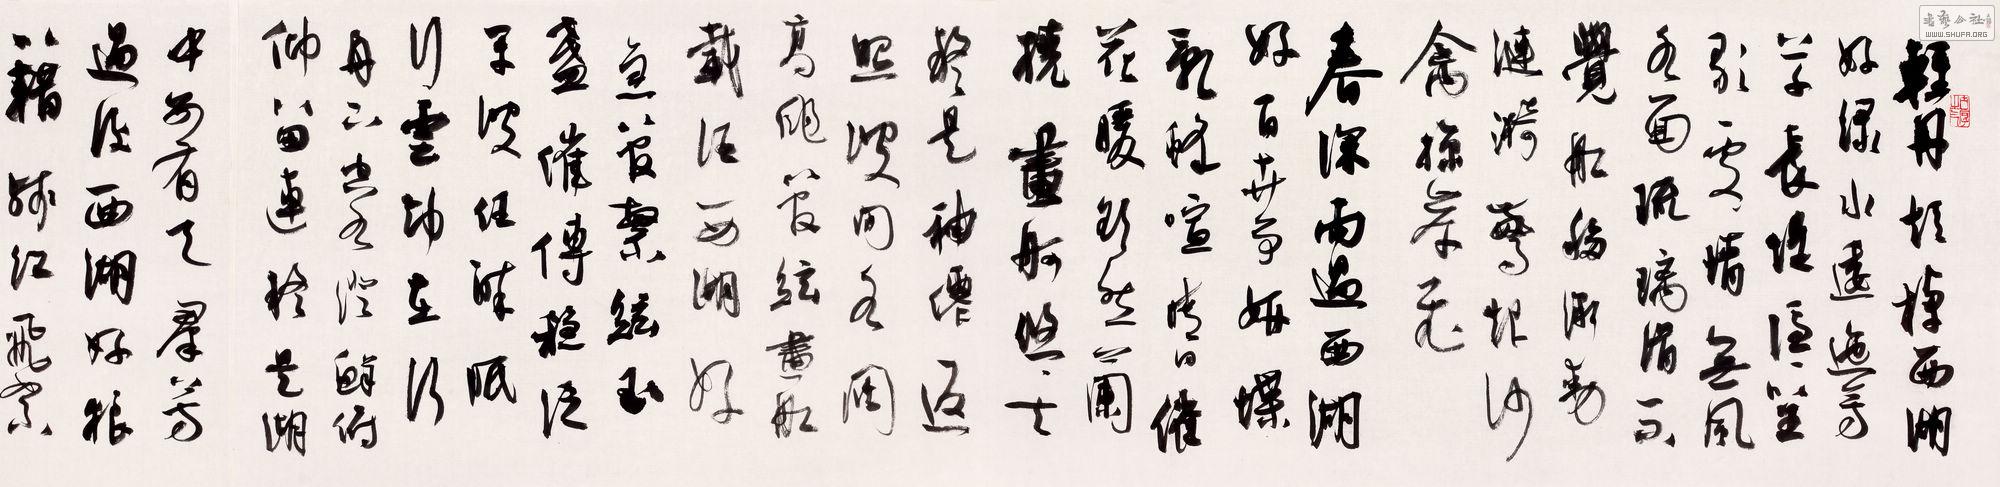 輕舟短棹西湖
好綠水逶迤芳
草長堤隱隱笙
歌處處隨無風
水面琉璃滑不
覺船移微動
漣漪驚起沙
禽掠岸飛
春深雨過西湖
好百卉爭妍蝶
亂蜂喧晴日催
花暖欲然蘭
橈畫舸悠悠去
疑是神僊返
照波間水闊
高颺管絃畫船
載酒西湖好
急管繁絃玉
盞催傳穩泛
平波任醉眠
行雲卻在行
舟下空水澄鮮俯
仰留連疑是湖
中別有天 羣芳
過後西湖好狼
籍殘紅飛絮
WWW.SHUFA.ORG